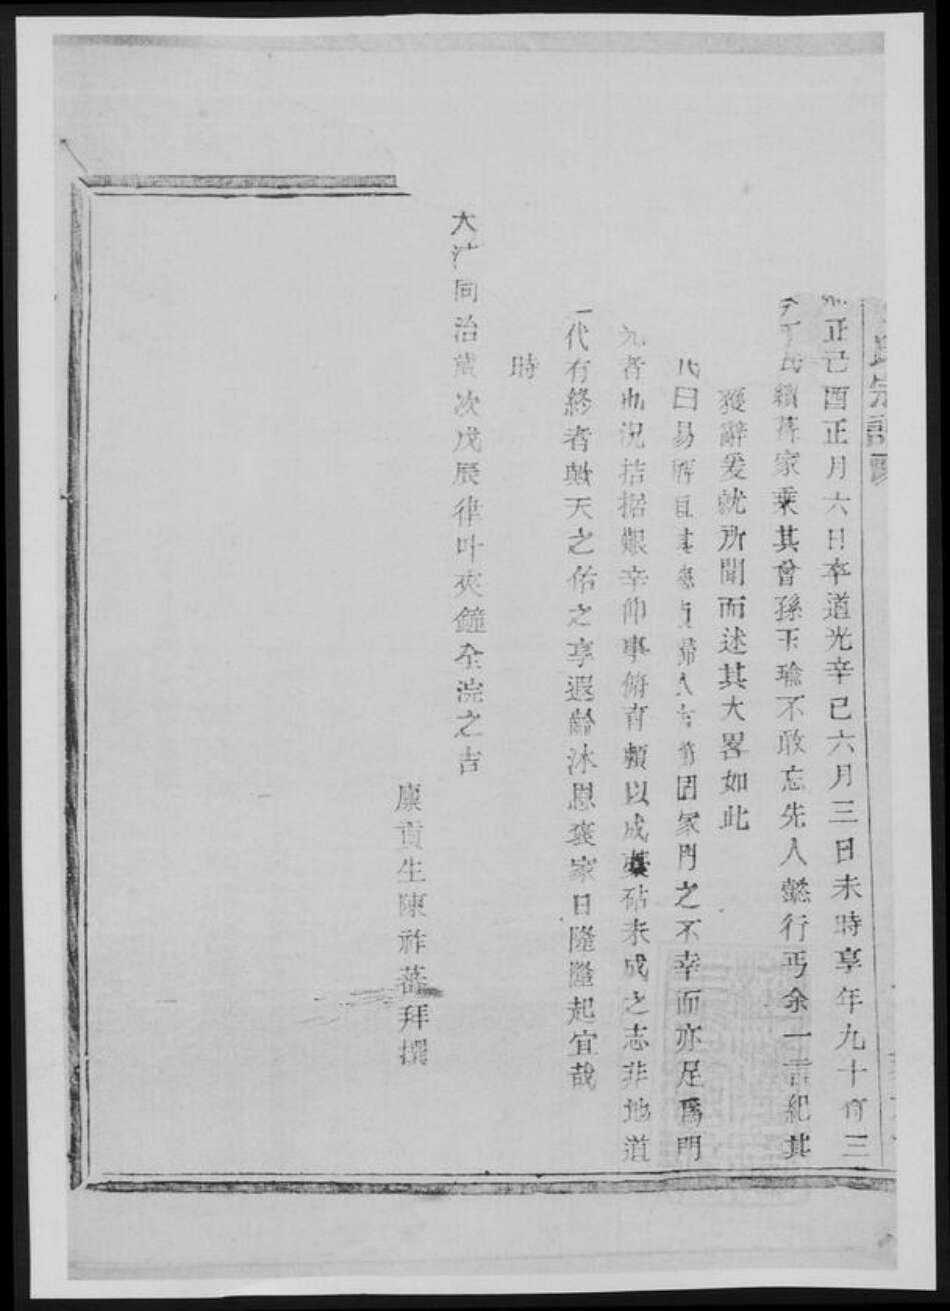 氏宗譜
正己酉正月六日卒道光辛巳六月三日未時享年九十有三
氏續葺家乘其曾孫玉瑜不敢忘先人懿行丐余一言紀其
獲辭爰就所聞而述其大畧如此
曰易 貞婦人吉 固家門之不幸而亦足爲門
者也況拮据艱辛仰事俯育頼以成 未成之志非地道
代有終者歟天之佑之享遐齡沐恩褒家日隆隆起宜哉
時
大清同治歲次戊辰律叶夾鐘全浣之吉
廩貢生陳祚蕃拜撰